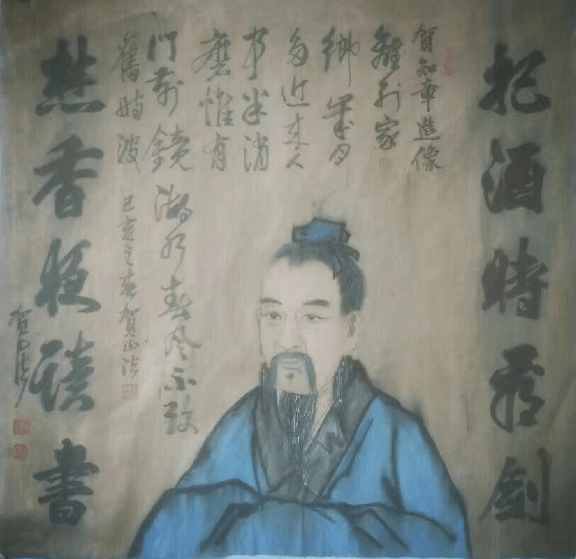 把酒時看劍
賀知章造像
離别家
鄉歲月
多近来人
事半消
磨惟有
門前鏡湖水春风不改
舊時波 己亥之春賀正
焚香夜读書
賀正